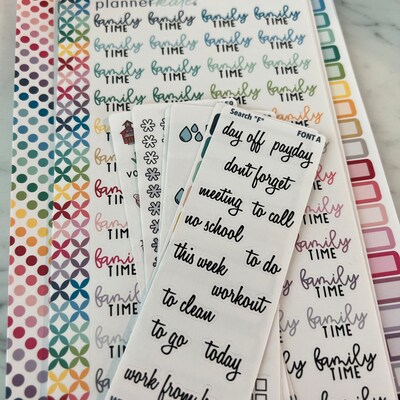 plannerkate
family family family family
TIME TIME TIME TIME
family family family family
TIME TIME TIME TIME
family family family family
TIME TIME TIME TIME
family
TIME
family
TIME
family
TIME
family
TIME
family
TIME
family
TIME
family
TIME
Search
FONT A
day off payday
don't forget
meeting to call
no school
this week to do
workout
to clean
to go today
work from
family
TIME
family
TIME
family
TIME
family
TIME
family
TIME
family
TIME